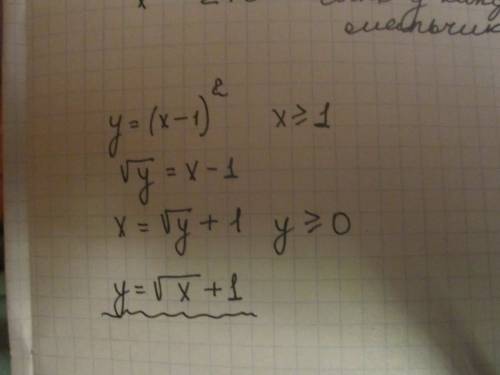 y = (x - 1)² x ≥ 1
√y = x - 1
x = √y + 1 y ≥ 0
y = √x + 1